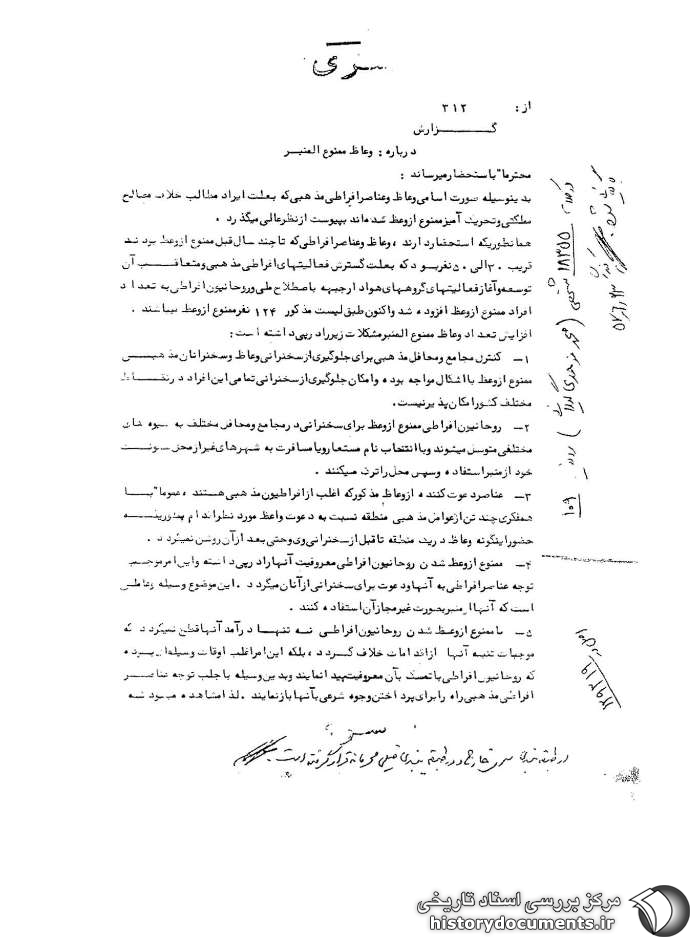 سری
از : ۳۱۲
گزارش
درباره : وعاظ ممنوع المنبر
محترما" باستحضار میرساند :
بدینوسیله صورت اسامی وعاظ و عناصر افراطی مذهبی که بعلت ایراد مطالب خلاف مصالح
مملکتی و تحریک آمیز ممنوع از وعظ شده اند بپیوست از نظر عالی میگذرد .
همانطوریکه استحضار دارند ، وعاظ و عناصر افراطی که تا چند سال قبل ممنوع از وعظ بودند
قریب ۳۰ الی ۵۰ نفر بود که بعلت گسترش فعالیتهای افراطی مذهبی و متعاقب آن
توسعه و آغاز فعالیتهای گروههای هوادار جبهه باصطلاح ملی و روحانیون افراطی به تعداد
افراد ممنوع از وعظ افزوده شد و اکنون طبق لیست مذکور ۱۲۴ نفر ممنوع از وعظ میباشند .
افزایش تعداد وعاظ ممنوع المنبر مشکلات زیر را در پی داشته است :
۱ـ کنترل مجامع و محافل مذهبی برای جلوگیری از سخنرانی وعاظ و سخنرانان مذهبی
ممنوع از وعظ با اشکال مواجه بوده و امکان جلوگیری از سخنرانی تمامی این افراد در نقاط
مختلف کشور امکان پذیر نیست .
۲ـ روحانیون افراطی ممنوع از وعظ برای سخنرانی در مجامع و محافل مختلف به شیوه های
مختلفی متوسل میشوند و با انتخاب نام مستعار و یا مسافرت به شهرهای غیر از محل سکونت
خود از منبر استفاده و سپس محل را ترک میکنند .
۳ـ عناصر دعوت کننده از وعاظ مذکور که اغلب از افراطیون مذهبی هستند ، عموما" با
همفکری چند تن از عوامل مذهبی منطقه نسبت به دعوت واعظ مورد نظر اقدام بطوریکه
حضور اینگونه وعاظ در یک منطقه تا قبل از سخنرانی وی و حتی بعد از آن روشن نمیگردد .
۴ـ ممنوع از وعظ شدن روحانیون افراطی معروفیت آنها را در پی داشته و این امر موجب
توجه عناصر افراطی به آنها و دعوت برای سخنرانی از آنان میگردد . این موضوع وسیله و عاملی
است که آنها از منبر بصورت غیر مجاز آن استفاده کنند .
۵ـ با ممنوع از وعظ شدن روحانیون افراطی نه تنها درآمد آنها قطع نمیگردد که
موجبات تنبه آنها از اقدامات خلاف گردد ، بلکه این امر اغلب اوقات وسیله ای بوده
که روحانیون افراطی با تمسک بآن معروفیت پیدا نمایند و بدین وسیله با جلب توجه عناصر
افراطی مذهبی راه را برای پرداختن وجوه شرعی بآنها باز نمایند . لذا مشاهده میشود که
سری
از طبقه بندی سری خارج و در طبقه بندی خیلی محرمانه قرار گرفته است
۱۸۳۵۵
۱۰۹
مرکز بررسی اسناد تاریخی
historydocuments.ir